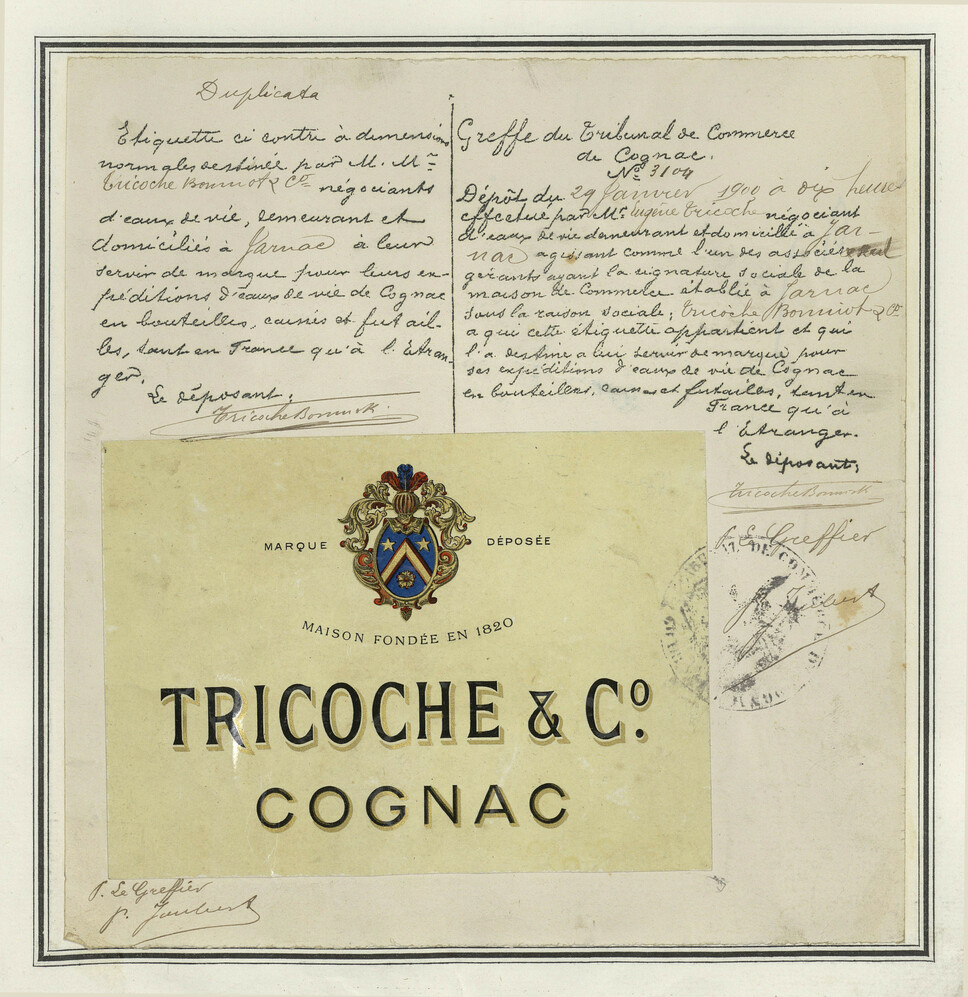 Duplicata
Etiquette ci contre à dimensions
normales destinée par M. M.rs
Tricoche Bonniot & Co négociants
d'eaux de vie, demeurant et
domiciliés à Jarnac à leur
servir de marque pour leurs ex-
péditions d'eaux de vie de Cognac
en bouteilles, caisses et futail-
les, tant en France qu'à l'Etran-
ger.
Le déposant;
Tricoche Bonniot
Greffe du Tribunal de Commerce
de Cognac.
No 3104
Dépôt du 29 Janvier 1900 à dix heures
effectué par Mr Eugène Tricoche négociant
d'eaux de vie demeurant et domicilié à Jar-
nac agissant comme l'un des associés
gérants ayant la signature sociale de la
maison de Commerce établie à Jarnac
sous la raison sociale; Tricoche Bonniot & Co
a qui cette étiquette appartient et qui
l'a destine a lui servir de marque pour
ses expéditions d'eaux de vie de Cognac
en bouteilles, caisses et futailles, tant en
France qu'à
l'Etranger.
Le déposant;
Tricoche Bonniot
P. Le Greffier
P. Joubert
MARQUE DÉPOSÉE
MAISON FONDÉE EN 1820
TRICOCHE & Co.
COGNAC
P. Le Greffier
P. Joubert